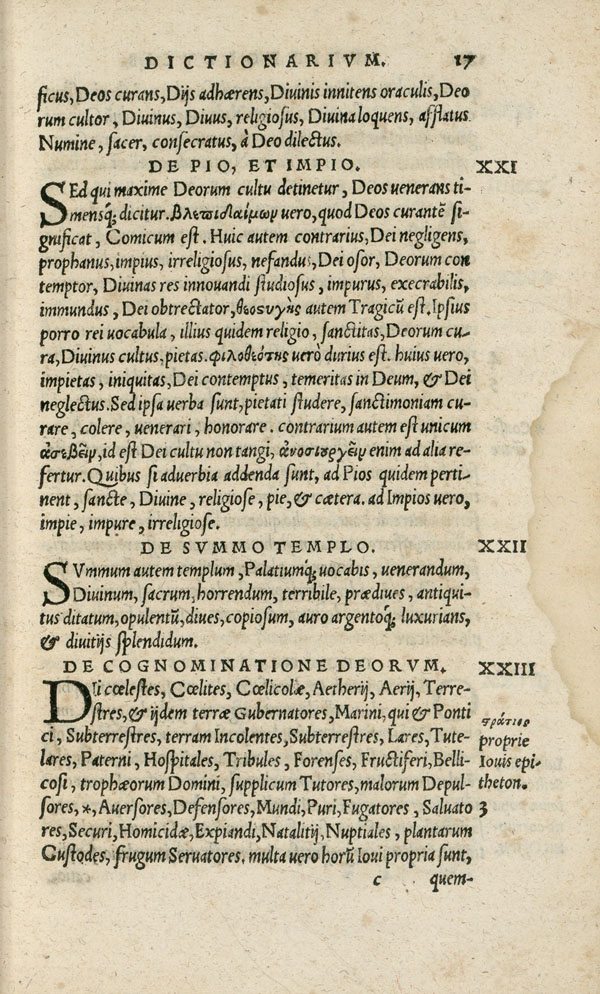 DICTIONARIVM. 17
ficus, Deos curans, Dijs adhærens, Diuinis innitens oraculis, Deo
rum cultor, Diuinus, Diuus, religiosus, Diuina loquens, afflatus
Numine, sacer, consecratus, à Deo dilectus.
DE PIO, ET IMPIO. XXI
SEd qui maxime Deorum cultu detinetur, Deos uenerans ti-
mensq́; dicitur. Βλεπιδαίμων uero, quod Deos curantẽ si-
gnificat, Comicum est. Huic autem contrarius, Dei negligens,
prophanus, impius, irreligiosus, nefandus, Dei osor, Deorum con
temptor, Diuinas res innouandi studiosus, impurus, execrabilis,
immundus, Dei obtrectator, θεοσυγὴς autem Tragicũ est. Ipsius
porro rei uocabula, illius quidem religio, sanctitas, Deorum cu-
ra, Diuinus cultus, pietas. φιλοθεότης uerò durius est. huius uero,
impietas, iniquitas, Dei contemptus, temeritas in Deum, & Dei
neglectus. Sed ipsa uerba sunt, pietati studere, sanctimoniam cu-
rare, colere, uenerari, honorare. contrarium autem est unicum
ἀσεβεῖν, id est Dei cultu non tangi, ἀνοσιουργεῖν enim ad alia re-
fertur. Quibus si aduerbia addenda sunt, ad Pios quidem perti-
nent, sancte, Diuine, religiose, pie, & cætera. ad Impios uero,
impie, impure, irreligiose.
DE SVMMO TEMPLO. XXII
SVmmum autem templum, Palatiumq́; uocabis, uenerandum,
Diuinum, sacrum, horrendum, terribile, prædiues, antiqui-
tus ditatum, opulentũ, diues, copiosum, auro argentoq́; luxurians,
& diuitijs splendidum.
DE COGNOMINATIONE DEORVM. XXIII
DIi cœlestes, Cœlites, Cœlicolæ, Aetherij, Aerij, Terre-
stres, & ijdem terræ Gubernatores, Marini, qui & Ponti
ci, Subterrestres, terram Incolentes, Subterrestres, Lares, Tute-
lares, Paterni, Hospitales, Tribules, Forenses, Fructiferi, Belli-
cosi, trophæorum Domini, supplicum Tutores, malorum Depul-
sores, *, Auersores, Defensores, Mundi, Puri, Fugatores, Saluato
res, Securi, Homicidæ, Expiandi, Natalitij, Nuptiales, plantarum
Custodes, frugum Seruatores. multa uero horũ Ioui propria sunt,
proprie
Iouis epi-
theton.
3
c quem-